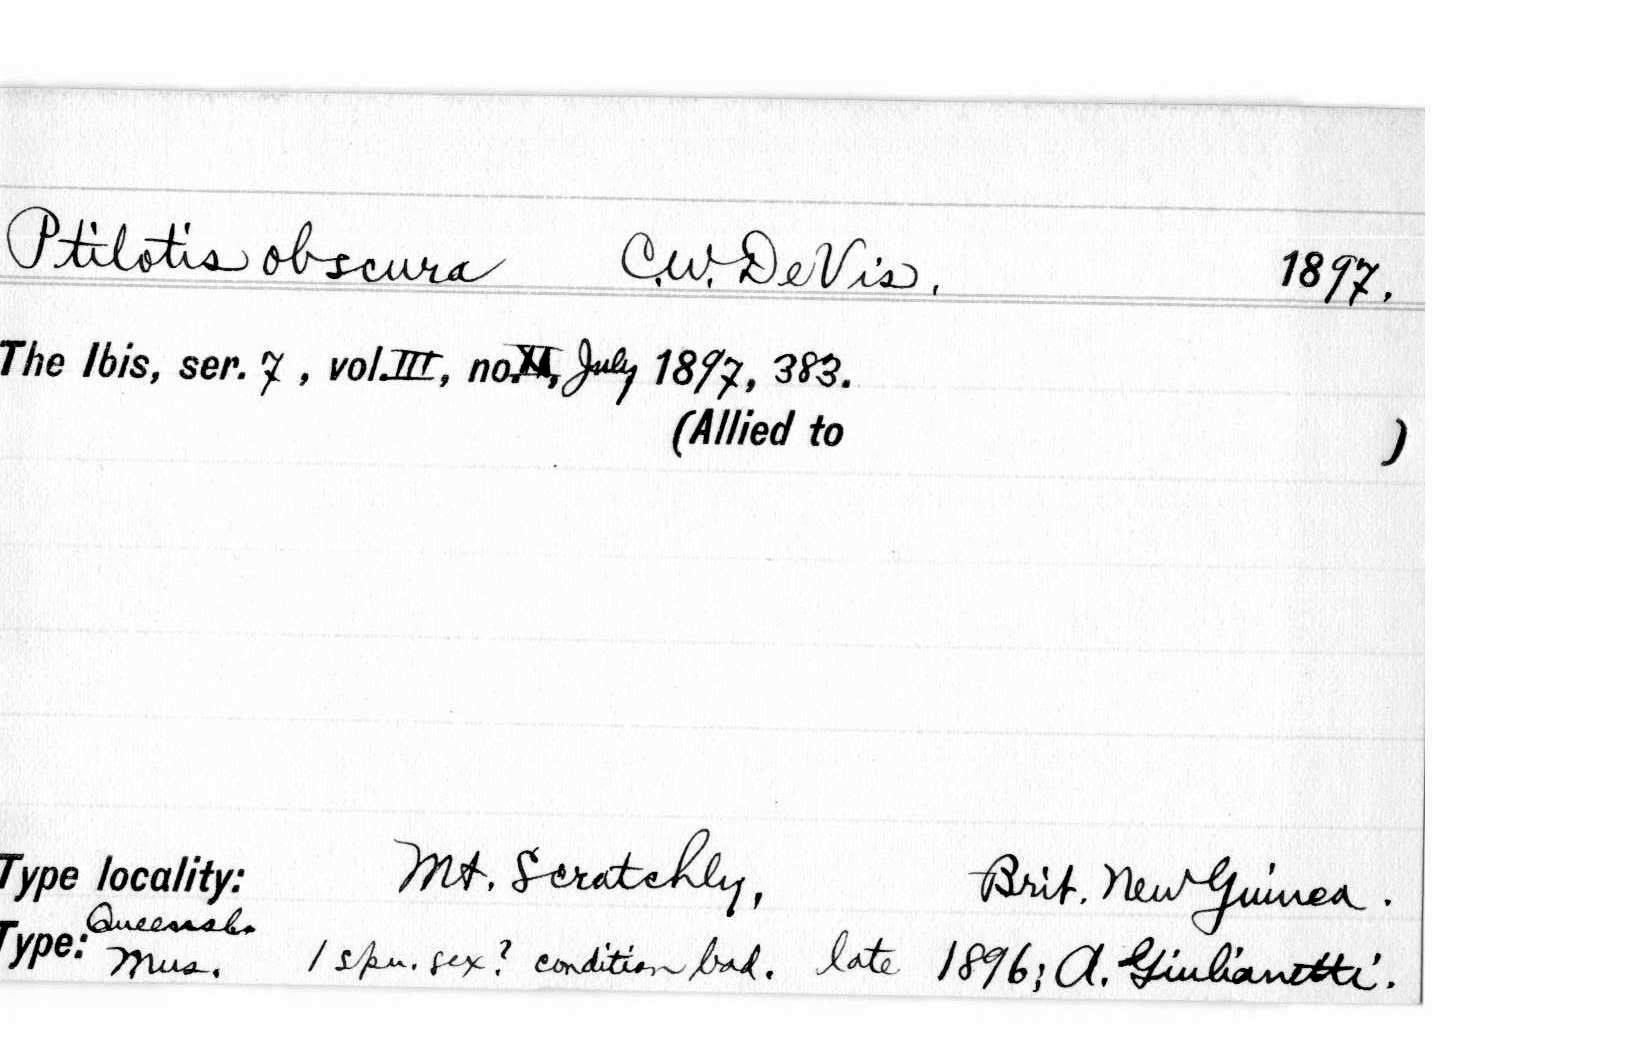 Ptilotis obscura C.W. DeVis. 1897.
The Ibis, ser. 7, vol. III, no. XI, July 1897, 383.
(Allied to )
Type locality: Mt. Scratchly, Brit. New Guinea.
Type: Queensl. Mus. 1 spn. sex? condition bad. late 1896; A. Giulianetti.